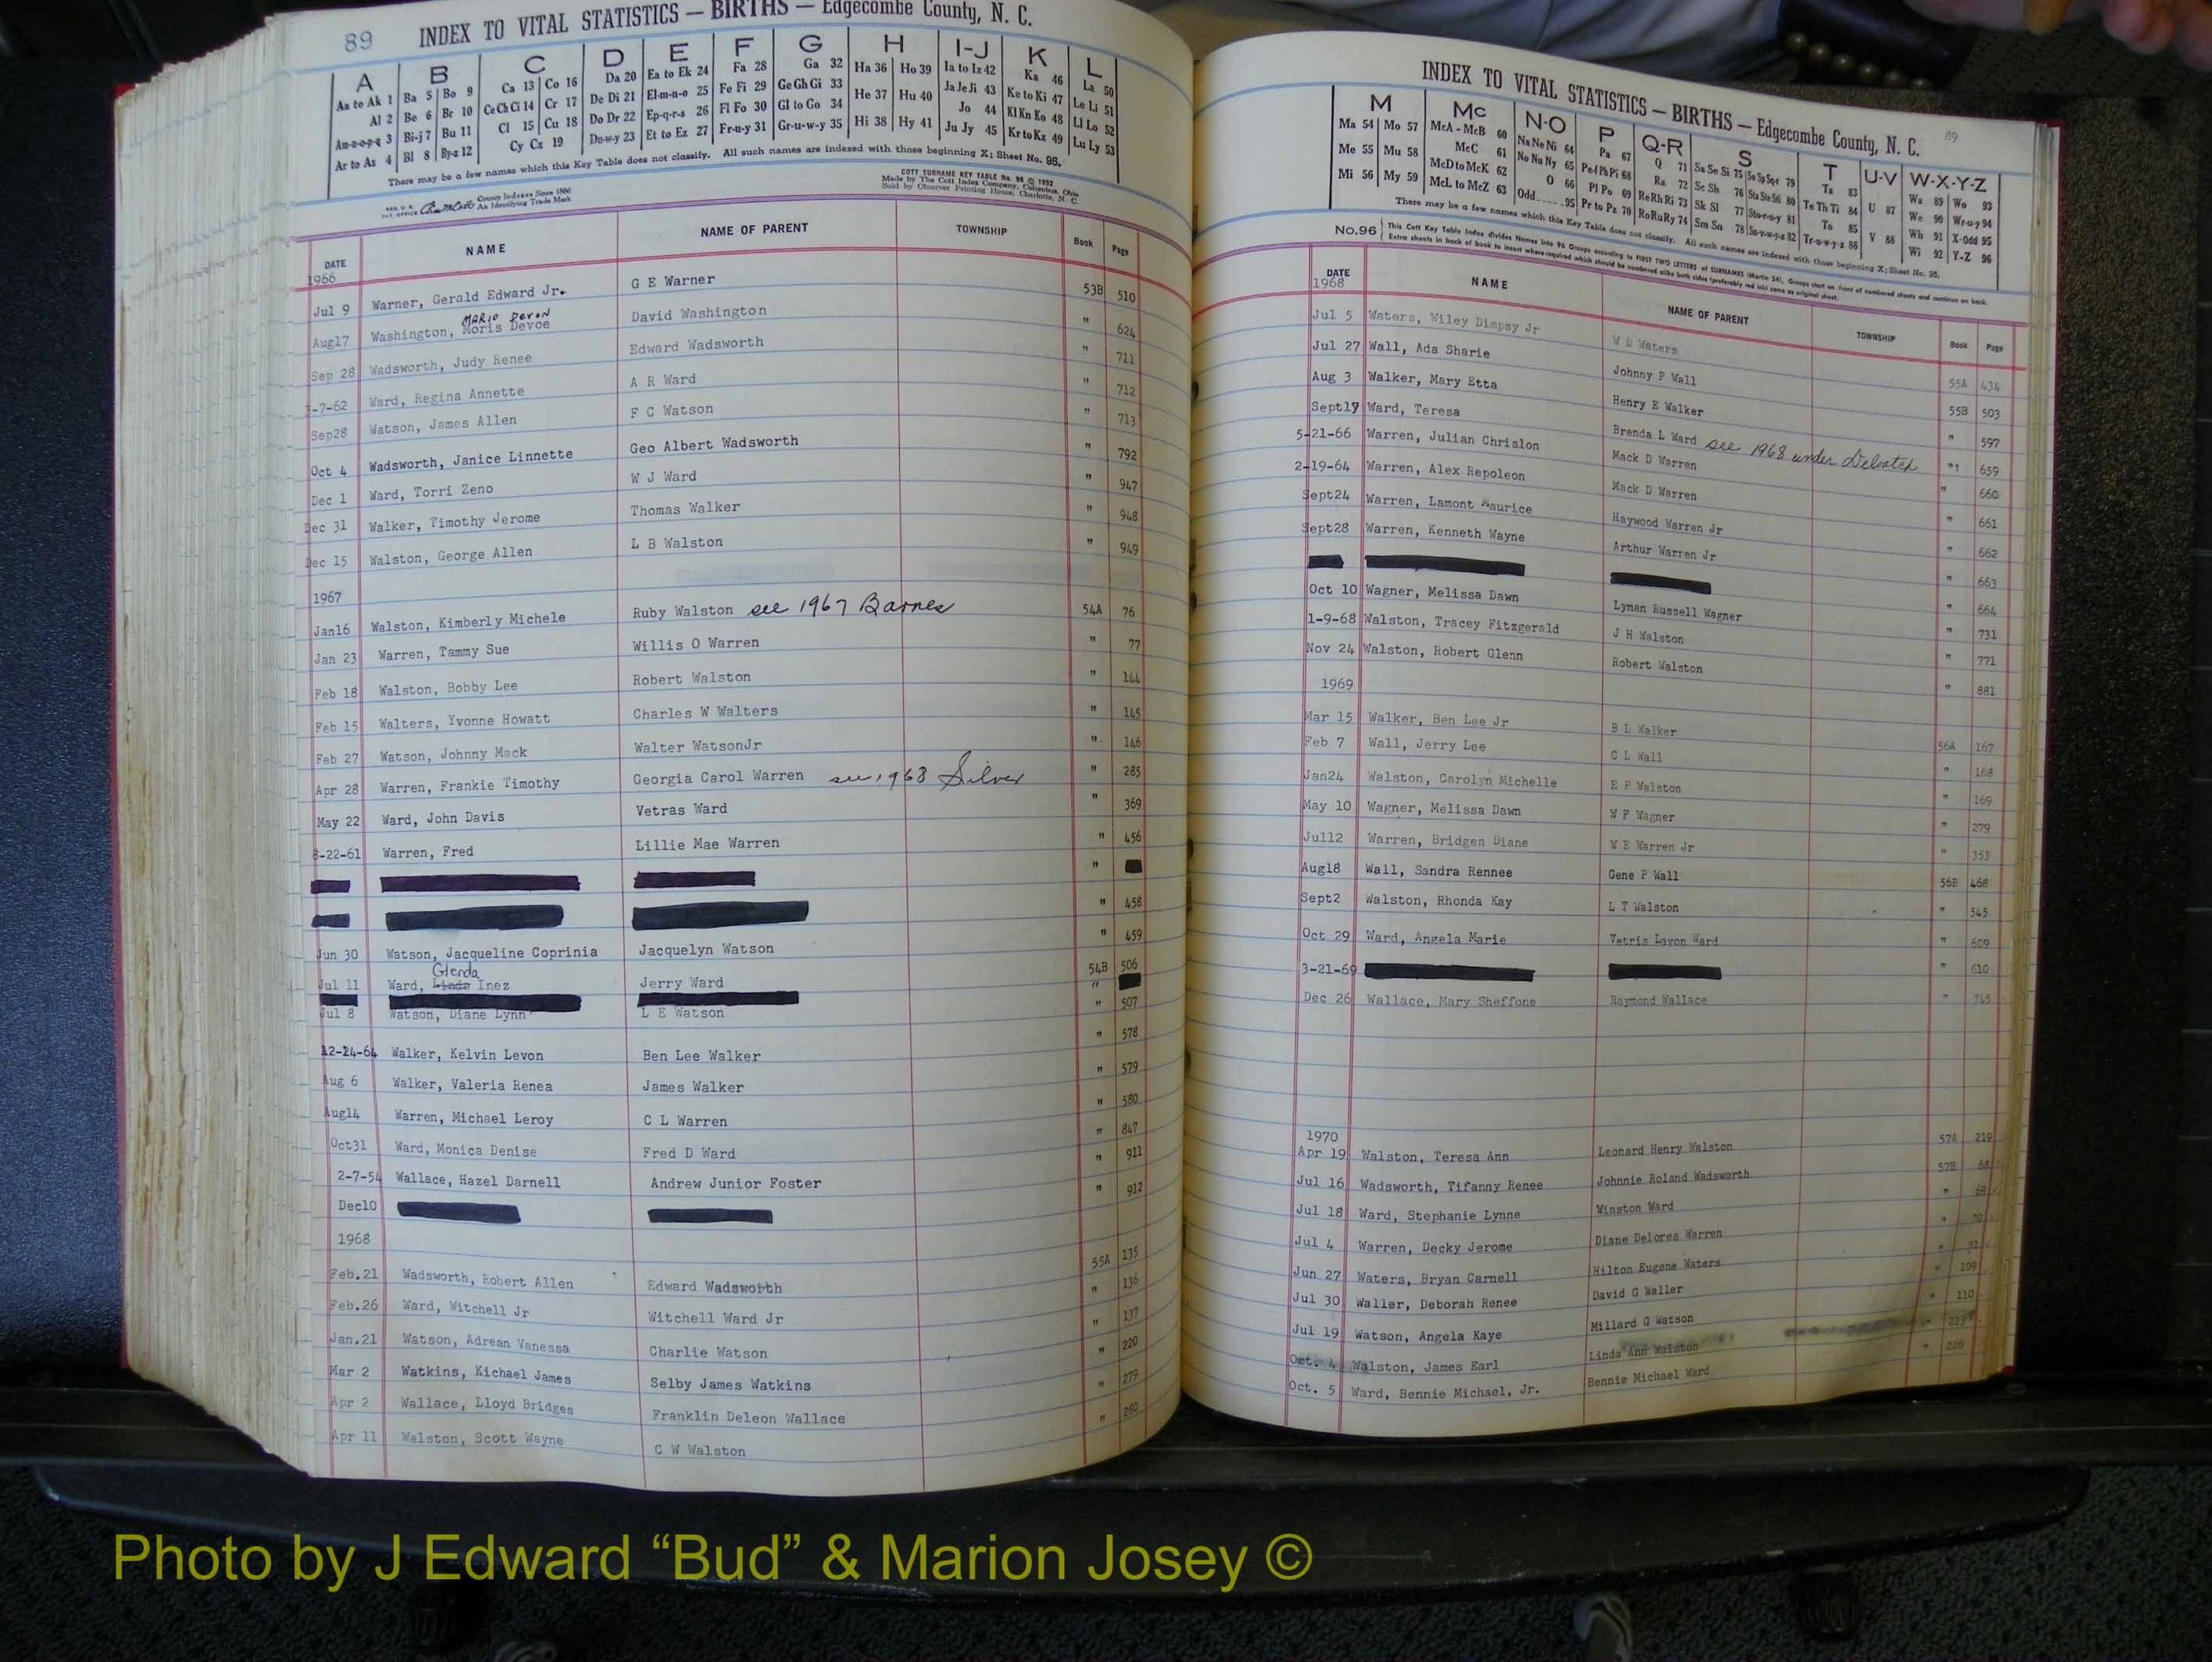 89 INDEX TO VITAL STATISTICS — BIRTHS — Edgecombe County, N. C.
A B C D E F G H I-J K L
Aa to Ak 1 Ba 5 Bo 9 Ca 13 Co 16 Da 20 Ea to Ek 24 Fa 28 Ga 32 Ha 36 Ho 39 Ia to Iz 42 Ka 46 La 50
Al 2 Be 6 Br 10 Ce Ch Ci 14 Cr 17 De Di 21 El-m-n-o 25 Fe Fi 29 Ge Gh Gi 33 He 37 Hu 40 Ja Je Ji 43 Ke to Ki 47 Le Li 51
Am-n-o-p-q 3 Bi-j 7 Bu 11 Cl 15 Cu 18 Do Dr 22 Ep-q-r-s 26 Fl Fo 30 Gl to Go 34 Hi 38 Hy 41 Jo 44 Kl Kn Ko 48 Ll Lo 52
Ar to Az 4 Bl 8 By-z 12 Cy Cz 19 Du-w-y 23 Et to Ez 27 Fr-u-y 31 Gr-u-w-y 35 Ju Jy 45 Kr to Kz 49 Lu Ly 53
There may be a few names which this Key Table does not classify. All such names are indexed with those beginning X; Sheet No. 95.
County Indexes Since 1888
An Identifying Trade Mark
COTT SURNAME KEY TABLE No. 96 © 1952
Made by The Cott Index Company, Columbus, Ohio
Sold by Observer Printing House, Charlotte, N. C.
DATE NAME NAME OF PARENT TOWNSHIP Book Page
1966
Jul 9 Warner, Gerald Edward Jr. G E Warner 53B 510
MARIO DEVON
Aug17 Washington, Moris Devoe David Washington " 624
Sep 28 Wadsworth, Judy Renee Edward Wadsworth " 711
-7-62 Ward, Regina Annette A R Ward " 712
Sep28 Watson, James Allen F C Watson " 713
Oct 4 Wadsworth, Janice Linnette Geo Albert Wadsworth " 792
Dec 1 Ward, Torri Zeno W J Ward " 947
Dec 31 Walker, Timothy Jerome Thomas Walker " 948
Dec 15 Walston, George Allen L B Walston " 949
1967
Jan16 Walston, Kimberly Michele Ruby Walston see 1967 Barnes 54A 76
Jan 23 Warren, Tammy Sue Willis O Warren " 77
Feb 18 Walston, Bobby Lee Robert Walston " 144
Feb 15 Walters, Yvonne Howatt Charles W Walters " 145
Feb 27 Watson, Johnny Mack Walter WatsonJr " 146
Apr 28 Warren, Frankie Timothy Georgia Carol Warren see 1968 Silver " 285
May 22 Ward, John Davis Vetras Ward " 369
8-22-61 Warren, Fred Lillie Mae Warren " 456
"
" 458
Jun 30 Watson, Jacqueline Coprinia Jacquelyn Watson " 459
Glenda
Jul 11 Ward, Linda Inez Jerry Ward 54B 506
"
Jul 8 Watson, Diane Lynn L E Watson " 507
12-24-64 Walker, Kelvin Levon Ben Lee Walker " 578
Aug 6 Walker, Valeria Renea James Walker " 579
Aug14 Warren, Michael Leroy C L Warren " 580
Oct31 Ward, Monica Denise Fred D Ward " 847
2-7-54 Wallace, Hazel Darnell Andrew Junior Foster " 911
Dec10 " 912
1968
Feb.21 Wadsworth, Robert Allen Edward Wadsworth 55A 135
Feb.26 Ward, Witchell Jr Witchell Ward Jr " 136
Jan.21 Watson, Adrean Vanessa Charlie Watson " 137
Mar 2 Watkins, Kichael James Selby James Watkins " 220
Apr 2 Wallace, Lloyd Bridges Franklin Deleon Wallace " 279
Apr 11 Walston, Scott Wayne C W Walston " 280
INDEX TO VITAL STATISTICS — BIRTHS — Edgecombe County, N. C. 89
M Mc N-O P Q-R S T U-V W-X-Y-Z
Ma 54 Mo 57 McA - McB 60 Na Ne Ni 64 Pa 67 Q 71 Sa Se Si 75 So Sp Sq-r 79 Ta 83 U 87 Wa 89 Wo 93
Me 55 Mu 58 McC 61 No Nu Ny 65 Pe-f Ph Pi 68 Ra 72 Sc Sh 76 Sta Ste Sti 80 Te Th Ti 84 V 88 We 90 Wr-u-y 94
Mi 56 My 59 McD to McK 62 O 66 Pl Po 69 Re Rh Ri 73 Sk Sl 77 Sto-r-u-y 81 To 85 Wh 91 X-Odd 95
McL to McZ 63 Odd 95 Pr to Pz 70 Ro Ru Ry 74 Sm Sn 78 Su-v-w-y-z 82 Tr-u-w-y-z 86 Wi 92 Y-Z 96
There may be a few names which this Key Table does not classify. All such names are indexed with those beginning X; Sheet No. 95.
No.96 This Cott Key Table Index divides Names into 96 Groups according to FIRST TWO LETTERS of SURNAMES (Martin 54). Groups start on front of numbered sheets and continue on back.
Extra sheets in back of book to insert where required which should be numbered alike both sides (preferably red ink) same as original sheet.
DATE NAME NAME OF PARENT TOWNSHIP Book Page
1968
Jul 5 Waters, Wiley Dimpsy Jr W D Waters 55A 434
Jul 27 Wall, Ada Sharie Johnny P Wall 55B 503
Aug 3 Walker, Mary Etta Henry E Walker " 597
Sept17 Ward, Teresa Brenda L Ward see 1968 under " 659
5-21-66 Warren, Julian Chrislon Mack D Warren " 660
2-19-64 Warren, Alex Repoleon Mack D Warren " 661
Sept24 Warren, Lamont Maurice Haywood Warren Jr " 662
Sept28 Warren, Kenneth Wayne Arthur Warren Jr " 663
" 664
Oct 10 Wagner, Melissa Dawn Lyman Russell Wagner " 731
1-9-68 Walston, Tracey Fitzgerald J H Walston " 771
Nov 24 Walston, Robert Glenn Robert Walston " 881
1969
Mar 15 Walker, Ben Lee Jr B L Walker 56A 167
Feb 7 Wall, Jerry Lee C L Wall " 168
Jan24 Walston, Carolyn Michelle E P Walston " 169
May 10 Wagner, Melissa Dawn W F Wagner " 279
Jul12 Warren, Bridgen Diane W E Warren Jr " 353
Aug18 Wall, Sandra Rennee Gene P Wall 56B 468
Sept2 Walston, Rhonda Kay L T Walston " 545
Oct 29 Ward, Angela Marie Vetris Lavon Ward " 609
3-21-69 " 610
Dec 26 Wallace, Mary Sheffone Raymond Wallace " 745
1970
Apr 19 Walston, Teresa Ann Leonard Henry Walston 57A 219
Jul 16 Wadsworth, Tifanny Renee Johnnie Roland Wadsworth 57B 68
Jul 18 Ward, Stephanie Lynne Winston Ward " 69
Jul 4 Warren, Decky Jerome Diane Delores Warren " 70
Jun 27 Waters, Bryan Carnell Hilton Eugene Waters " 71
Jul 30 Waller, Deborah Renee David G Waller " 109
Jul 19 Watson, Angela Kaye Millard G Watson " 110
Oct. 4 Walston, James Earl Linda Ann Walston " 225
Oct. 5 Ward, Bennie Michael, Jr. Bennie Michael Ward " 226
Photo by J Edward “Bud” & Marion Josey ©